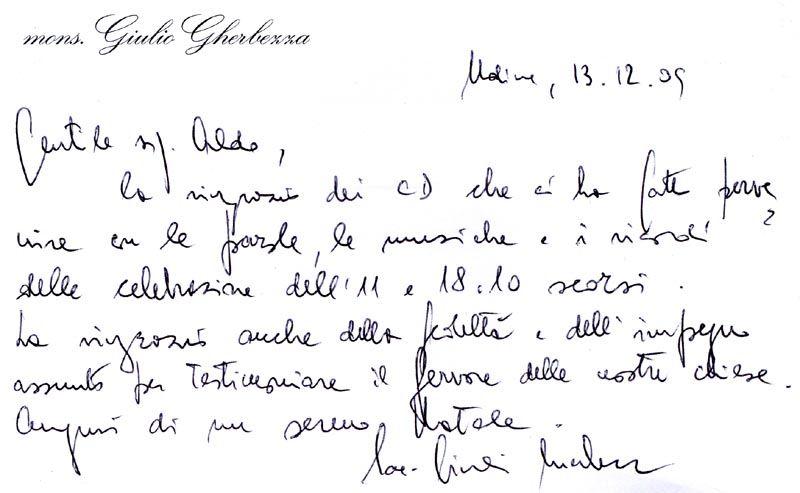 mons. Giulio Gherbezza
Udine, 13.12.09
Gentile sig. Aldo,
La ringrazio dei CD che ci ha fatto perve
nire con le parole, le musiche e i ricordi
delle celebrazione dell'11 e 18.10 scorsi.
La ringrazio anche della fedeltà e dell'impegno
assunto per testimoniare il fervore delle nostre chiese.
Auguri di un sereno Natale.